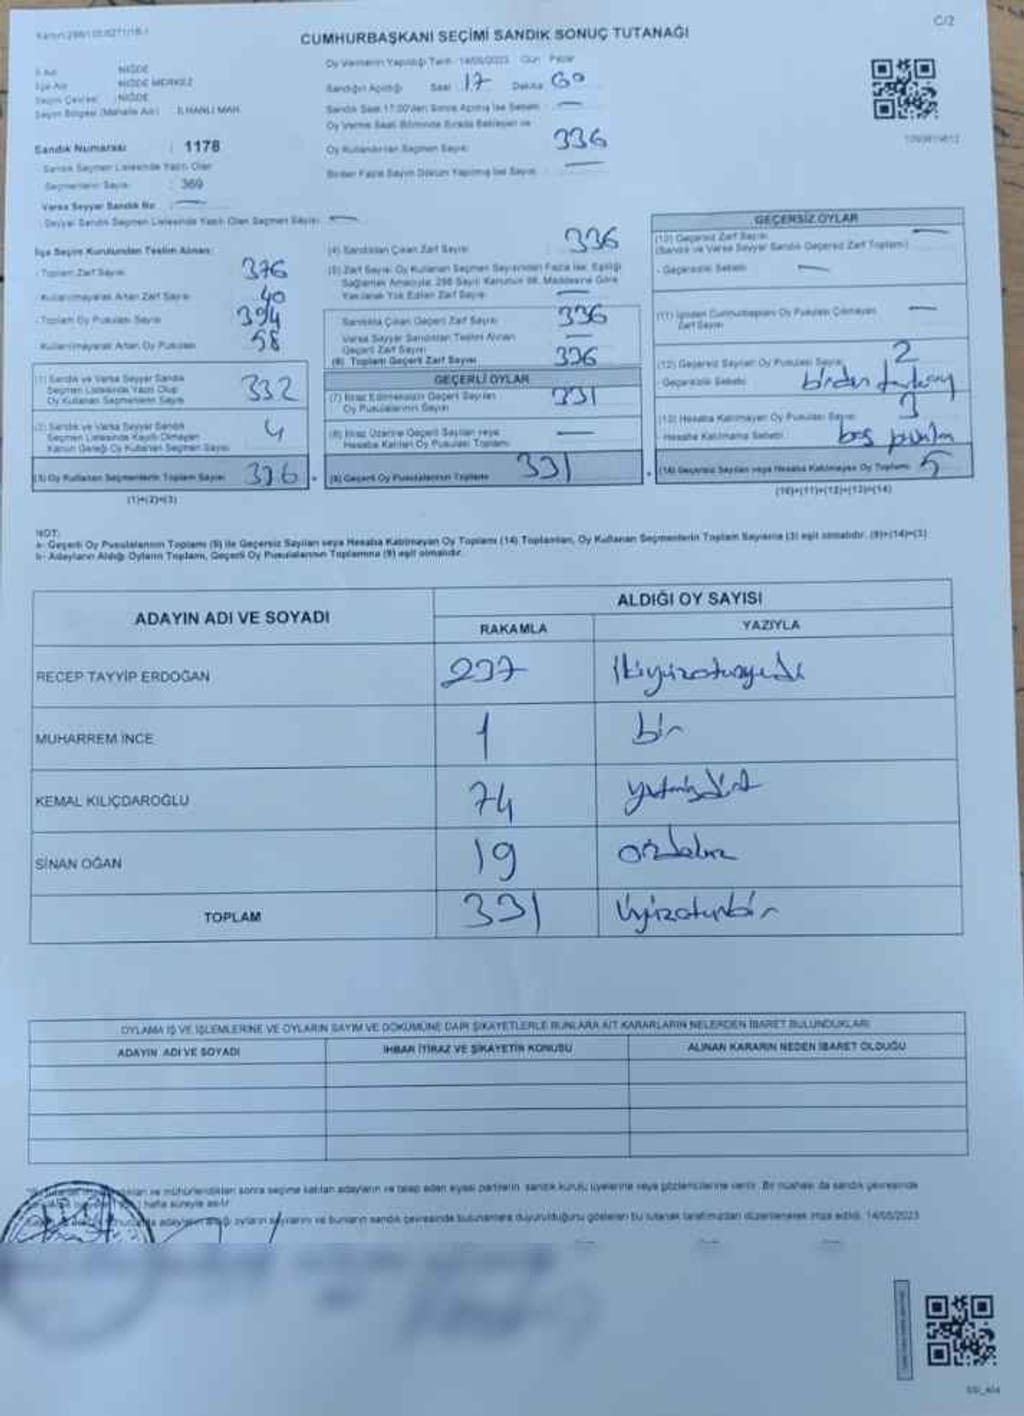 C/2
CUMHURBAŞKANI SEÇİMİ SANDIK SONUÇ TUTANAĞI
İl Adı : NİĞDE
İlçe Adı : NİĞDE MERKEZ
Seçim Çevresi : NİĞDE
Seçim Bölgesi (Mahalle Adı) : İLHANLI MAH.
Sandık Numarası : 1178
Sandık Seçmen Listesinde Yazılı Olan
Seçmenlerin Sayısı : 369
Varsa Seyyar Sandık No : —
Seyyar Sandık Seçmen Listesinde Yazılı Olan Seçmen Sayısı : —
Oy Vermenin Yapıldığı Tarih : 14/05/2023 Gün : Pazar
Sandığın Açıldığı Saat : 17 Dakika : 60
Sandık Saat 17:00'den Sonra Açılmış İse Sebebi : —
Oy Verme Saati Bitiminde Sırada Bekleyen ve
Oy Kullandırılan Seçmen Sayısı : 336
Birden Fazla Sayım Döküm Yapılmış İse Sayısı : —
İlçe Seçim Kurulundan Teslim Alınan:
- Toplam Zarf Sayısı : 376
- Kullanılmayarak Artan Zarf Sayısı : 40
- Toplam Oy Pusulası Sayısı : 394
- Kullanılmayarak Artan Oy Pusulası : 58
(1) Sandık ve Varsa Seyyar Sandık
Seçmen Listesinde Yazılı Olup
Oy Kullanan Seçmenlerin Sayısı 332
(2) Sandık ve Varsa Seyyar Sandık
Seçmen Listesinde Kayıtlı Olmayan
Kanun Gereği Oy Kullanan Seçmen Sayısı 4
(3) Oy Kullanan Seçmenlerin Toplam Sayısı 336
(1)+(2)=(3)
(4) Sandıktan Çıkan Zarf Sayısı : 336
(5) Zarf Sayısı Oy Kullanan Seçmen Sayısından Fazla İse, Eşitliği
Sağlamak Amacıyla; 298 Sayılı Kanunun 98. Maddesine Göre
Yakılarak Yok Edilen Zarf Sayısı : —
Sandıkta Çıkan Geçerli Zarf Sayısı : 336
Varsa Seyyar Sandıktan Teslim Alınan
Geçerli Zarf Sayısı : —
(6) Toplam Geçerli Zarf Sayısı 336
GEÇERLİ OYLAR
(7) İtiraz Edilmeksizin Geçerli Sayılan
Oy Pusulalarının Sayısı 331
(8) İtiraz Üzerine Geçerli Sayılan veya
Hesaba Katılan Oy Pusulası Toplamı —
(9) Geçerli Oy Pusulalarının Toplamı 331
GEÇERSİZ OYLAR
(10) Geçersiz Zarf Sayısı —
(Sandık ve Varsa Seyyar Sandık Geçersiz Zarf Toplamı)
- Geçersizlik Sebebi : —
(11) İçinden Cumhurbaşkanı Oy Pusulası Çıkmayan
Zarf Sayısı —
(12) Geçersiz Sayılan Oy Pusulası Sayısı 2
- Geçersizlik Sebebi : birden
(13) Hesaba Katılmayan Oy Pusulası Sayısı 3
- Hesaba Katılmama Sebebi : boş pusula
(14) Geçersiz Sayılan veya Hesaba Katılmayan Oy Toplamı 5
(10)+(11)+(12)+(13)=(14)
NOT:
a- Geçerli Oy Pusulalarının Toplamı (9) ile Geçersiz Sayılan veya Hesaba Katılmayan Oy Toplamı (14) Toplamları, Oy Kullanan Seçmenlerin Toplam Sayısına (3) eşit olmalıdır. (9)+(14)=(3)
b- Adayların Aldığı Oyların Toplamı, Geçerli Oy Pusulalarının Toplamına (9) eşit olmalıdır.
ADAYIN ADI VE SOYADI ALDIĞI OY SAYISI
RAKAMLA YAZIYLA
RECEP TAYYİP ERDOĞAN 237 İkiyüzotuzyedi
MUHARREM İNCE 1 bir
KEMAL KILIÇDAROĞLU 74 yetmişdört
SİNAN OĞAN 19 ondokuz
TOPLAM 331 Üçyüzotuzbir
OYLAMA İŞ VE İŞLEMLERİNE VE OYLARIN SAYIM VE DÖKÜMÜNE DAİR ŞİKAYETLERLE BUNLARA AİT KARARLARIN NELERDEN İBARET BULUNDUKLARI
ADAYIN ADI VE SOYADI İHBAR İTİRAZ VE ŞİKAYETİN KONUSU ALINAN KARARIN NEDEN İBARET OLDUĞU
ve mühürlendikten sonra seçime katılan adayların ve talep eden siyasi partilerin sandık kurulu üyelerine veya gözlemcilerine verilir. Bir nüshası da sandık çevresinde
hafta süreyle asılır.
adayların aldığı oyların sayılarını ve bunların sandık çevresinde bulunanlara duyurulduğunu gösteren bu tutanak tarafımızdan düzenlenerek imza edildi. 14/05/2023